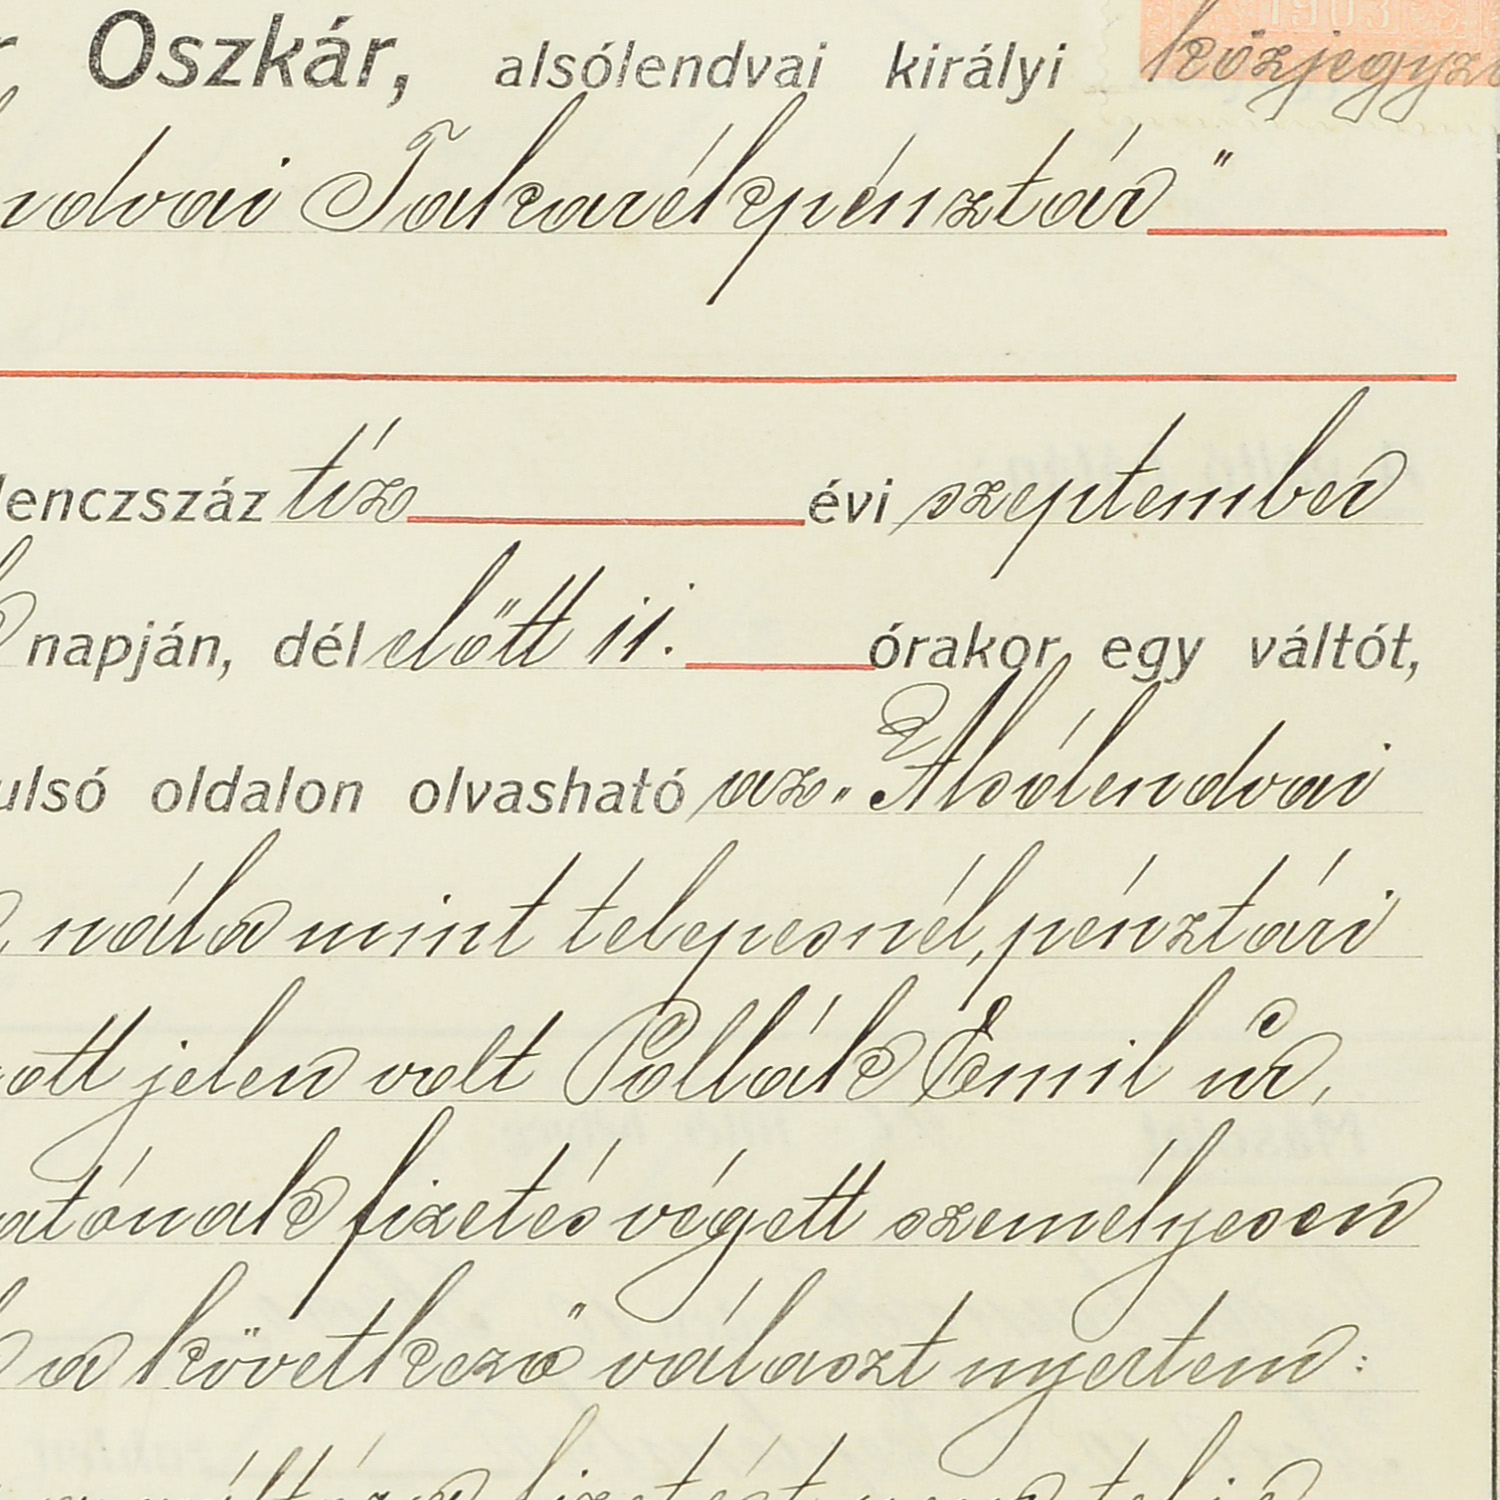 Oszkár, alsólendvai királyi közjegyző
ndvai Takarékpénztár"
lenczszáz tíz évi szeptember
napján, délelőtt 11. órakor egy váltót,
ulsó oldalon olvasható az "Alsólendvai
nála mint telepesnél, pénztári
ott jelen volt Pollák Emil úr,
atónak fizetés végett személyesen
a következő választ nyertem: